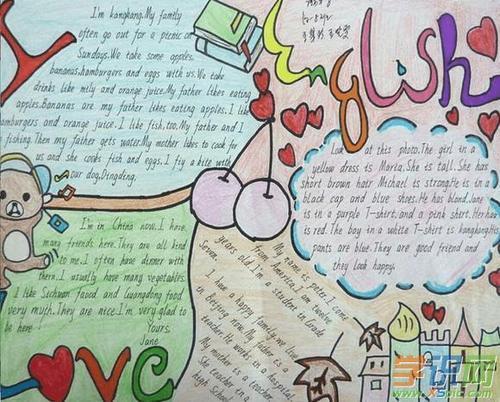 I'm kangkang.My family
often go out for a picnic on
Sundays.We take some apples,
bananas,hamburgers and eggs with us.We take
drinks like mily and orange juice.My father likes eating
apples.Bananas are my father likes eating apples.I like
hamburgers and orange juice.I like fish,too.My father and I
fishing.Then my father gets water.My mother likes to cook for
us and she cooks fish and eggs.I fly a kite with
our dog,Dingdeng.
English
Look at this photo.The girl in a
yellow dress is Maria.She is tall.She has
short brown hair Michael is strong.He is in a
black cap and blue shoes.He has blond.Jane
is in a purple T-shirt,and a pink shirt.Her hair
is red.The boy in a white T-shirt is kangkang.His
pants are blue.They are good friend and
they look happy.
I'm in China now.I have
many friends here.They are all kind
to me.I often have dinner with
them.I usually have many vegetables.
I like Sichuan faood and Guangdong food
very myth.They are nice.I'm very glad to
be here!
Yours,
Jane
My name is peter.I come
from America.I am twelve
years old.I'm a student in Grade
Seven.
I have a happy family.we live
in Beijing now.My father is a
teacher.He works in a hospital
My mother is a teacher.
She teacher in a
high School
LOVE
学识网
www.xspic.com